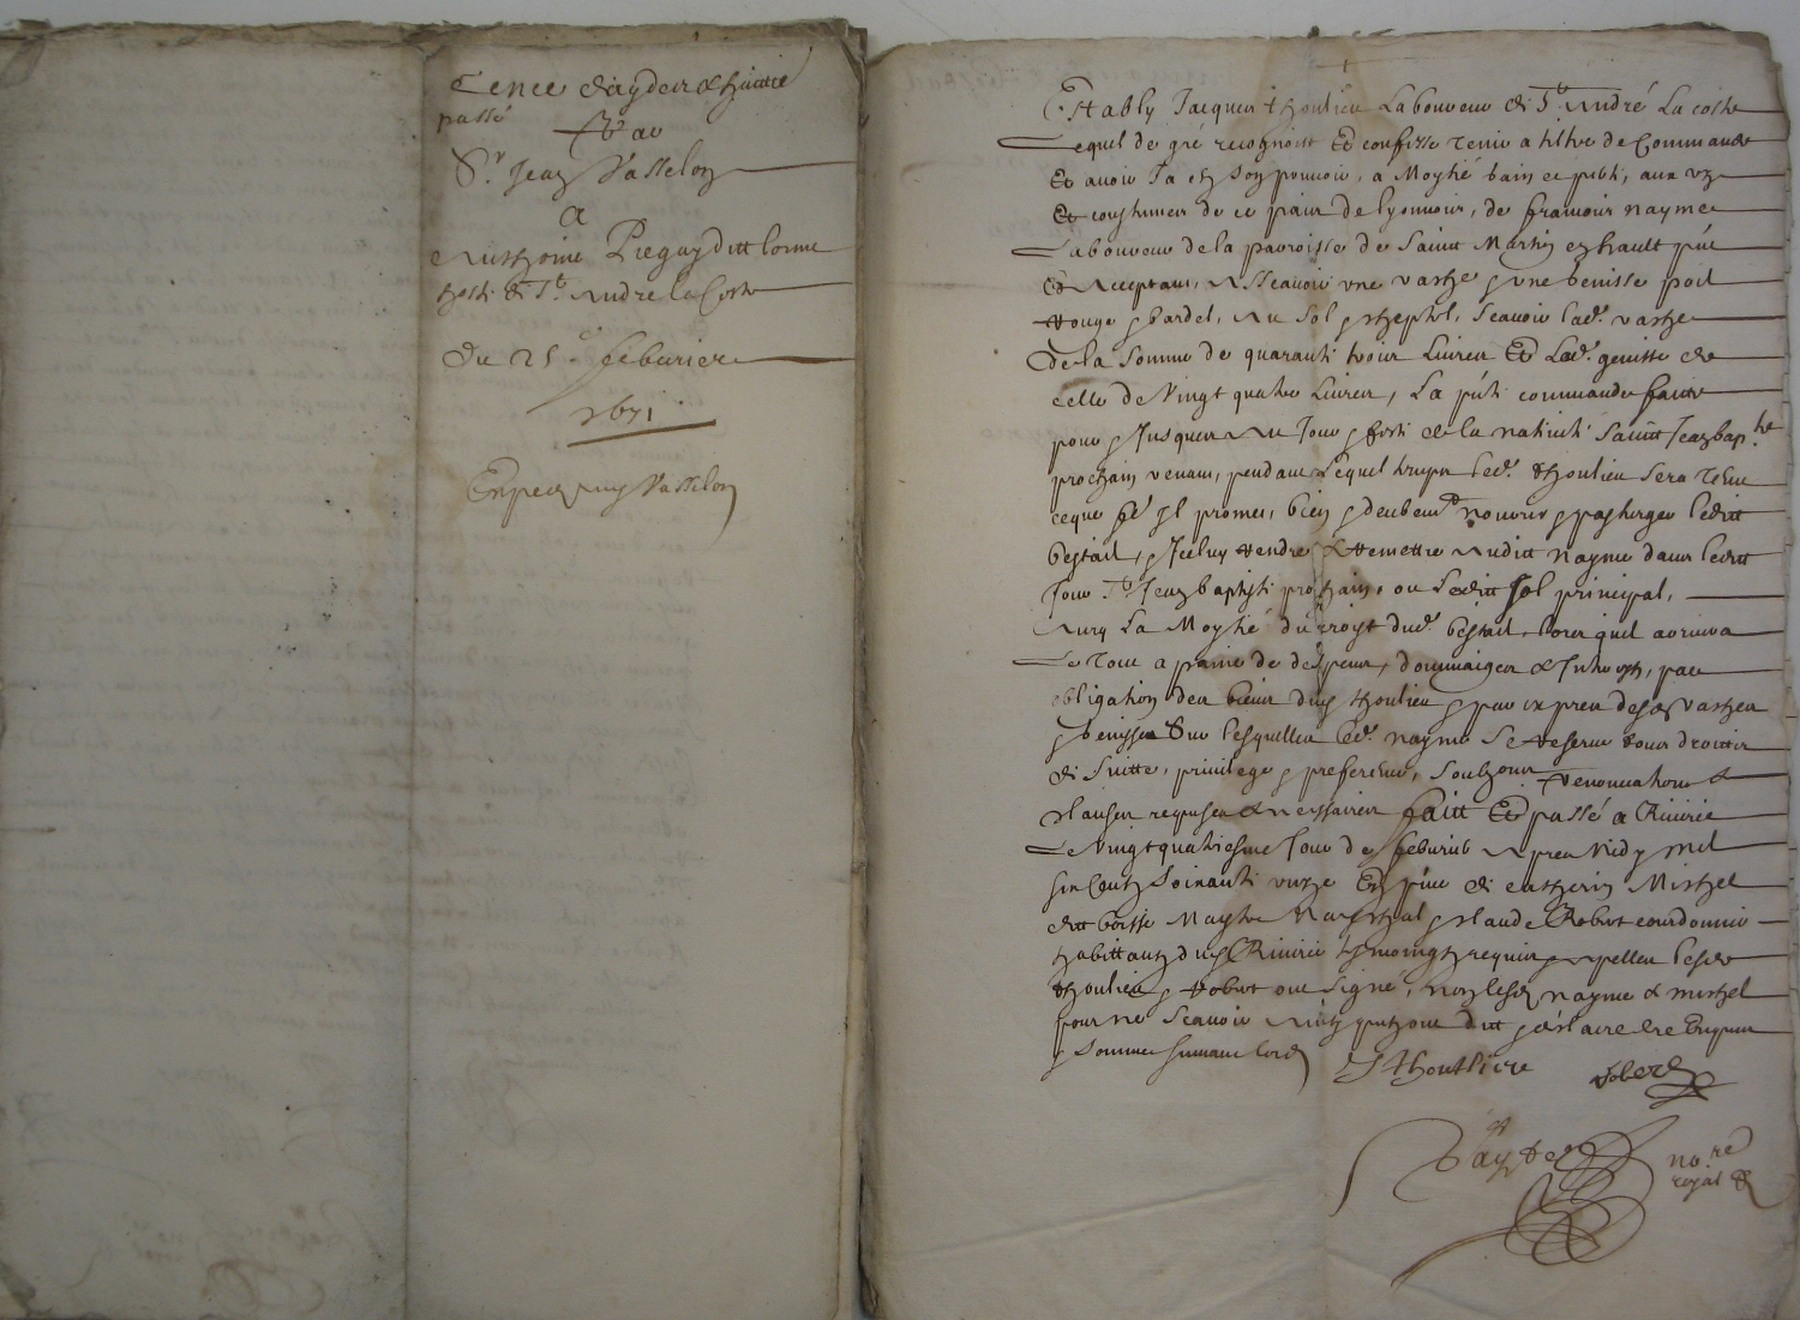 passé
Par
Sr. Jean Vasselon
A
Anthoine Preguy ditt
de St. André la Coste
du 25e feburier
1671
Exped Vasselon
Estably Jacques Thoulieu Laboureur de St. André La Coste
Lequel de gré recognoist Et confesse tenir a tiltre de Commande
Et avoir Ja en son pouvoir, a Moytié bain et pubt, aux vz
Et coustumes de ce pais de lyonnois, de francois nayme
Laboureur de la parroisse de Sainct Martin en hault pnt
Et Acceptant, Asscavoir une vasche & une genisse poil
Rouge & bardel, Au Sol & cheptel, Scavoir lad. vasche
De la Somme de quarante trois Livres Et Lad. genisse de
celle de Vingt quatre Livres, La pnte commande faicte
pour & Jusques Au Jour & feste de la nativité Sainct Jean bapte
prochain venant, pendant Lequel temps led. Thoulieu Sera tenu
ceque Il promet, bien & deubemt nourrir & pasturger leditt
bestail, & Jceluy Rendre & Remettre Auditt nayme dans leditt
Jour St Jean baptiste prochain, ou Leditt Sol principal,
Avec La Moytié du croist dud. bestail, lorsquil arrivera
Le Tout a paine de despens, dommaiges & Interestz, par
obligation des biens dud Thoulieu & par exprez desd vaches
& genisses Sur lesquelles led. nayme Se Reserve tous droictz
de Suitte, privilege & preference, Soubz Renonciations &
clauses requises & necessaires faitt Et passé a Riverie
Le Vingt quatriesme Jour de feburier Apres Midy mil
six Centz Soixante unze En pnce de catherin Mischel
ditt Maistre Mareschal & claude Robert courdonnier
habittantz dud Riverie tesmoingtz requis & appelles lesd
Thoulieu & Robert ont Signé, non lesd nayme & mischel
pour ne Scavoir ditt & declaré de Enquis
& Sommes suivant lord
J Thoulliere Robert
nore
royal